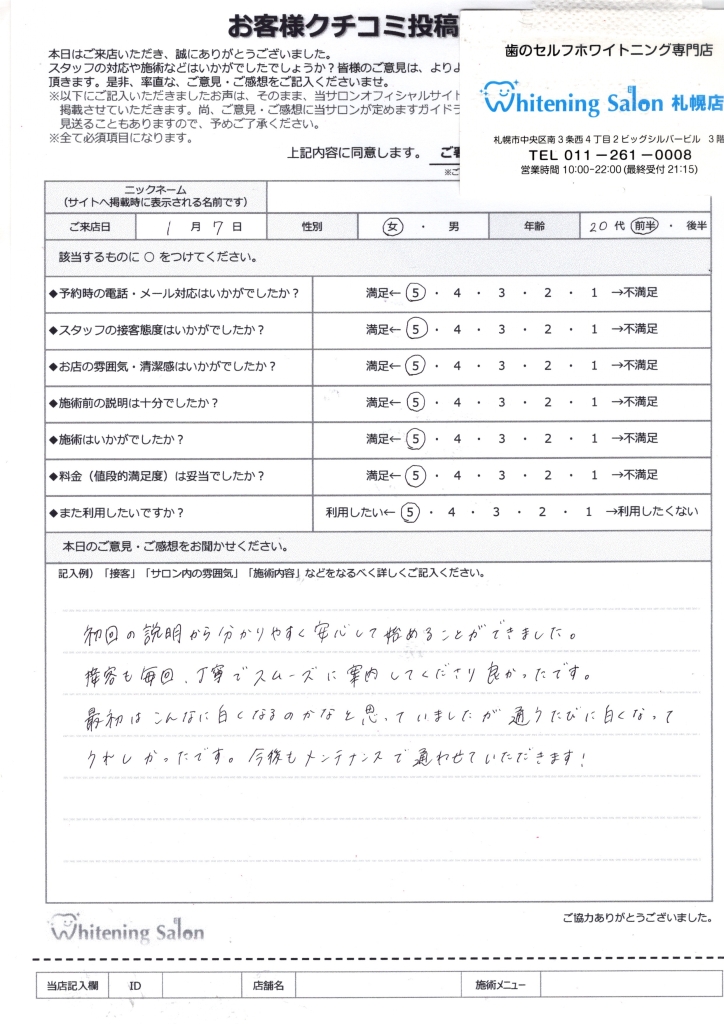 お客様クチコミ投稿
本日はご来店いただき、誠にありがとうございました。
スタッフの対応や施術などはいかがでしたでしょうか？皆様のご意見は、よりよ
頂きます。是非、率直な、ご意見・ご感想をご記入くださいませ。
※以下にご記入いただきましたお声は、そのまま、当サロンオフィシャルサイト
掲載させていただきます。尚、ご意見・ご感想に当サロンが定めますガイドラ
見送ることもありますので、予めご了承ください。
※全て必須項目になります。
上記内容に同意します。
※ご
歯のセルフホワイトニング専門店
Whitening Salon 札幌店
札幌市中央区南3条西4丁目2ビッグシルバービル 3階
TEL 011-261-0008
営業時間 10:00-22:00 (最終受付 21:15)
ニックネーム
（サイトへ掲載時に表示される名前です）
ご来店日 1 月 7 日 性別 女 ・ 男 年齢 20 代 前半 ・ 後半
該当するものに ○ をつけてください。
◆予約時の電話・メール対応はいかがでしたか？ 満足← 5 ・ 4 ・ 3 ・ 2 ・ 1 →不満足
◆スタッフの接客態度はいかがでしたか？ 満足← 5 ・ 4 ・ 3 ・ 2 ・ 1 →不満足
◆お店の雰囲気・清潔感はいかがでしたか？ 満足← 5 ・ 4 ・ 3 ・ 2 ・ 1 →不満足
◆施術前の説明は十分でしたか？ 満足← 5 ・ 4 ・ 3 ・ 2 ・ 1 →不満足
◆施術はいかがでしたか？ 満足← 5 ・ 4 ・ 3 ・ 2 ・ 1 →不満足
◆料金（値段的満足度）は妥当でしたか？ 満足← 5 ・ 4 ・ 3 ・ 2 ・ 1 →不満足
◆また利用したいですか？ 利用したい← 5 ・ 4 ・ 3 ・ 2 ・ 1 →利用したくない
本日のご意見・ご感想をお聞かせください。
記入例）「接客」「サロン内の雰囲気」「施術内容」などをなるべく詳しくご記入ください。
初回の説明から分かりやすく安心して始めることができました。
接客も毎回、丁寧でスムーズに案内してくださり良かったです。
最初はこんなに白くなるのかなと思っていましたが通うたびに白くなって
うれしかったです。今後もメンテナンスで通わせていただきます！
Whitening Salon
ご協力ありがとうございました。
当店記入欄 ID 店舗名 施術メニュー